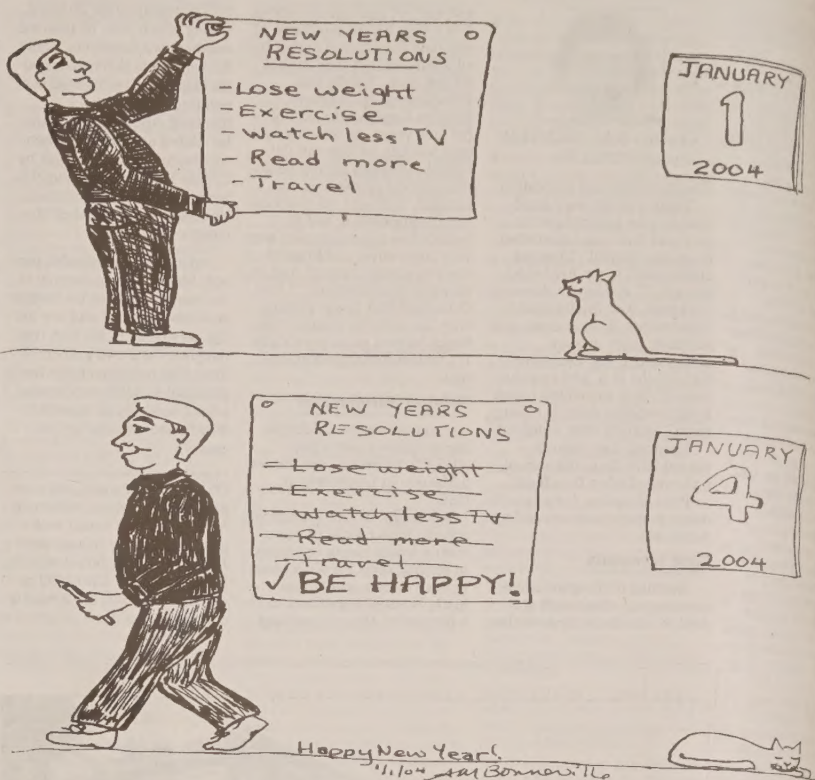 NEW YEARS
RESOLUTIONS
- Lose weight
- Exercise
- Watch less TV
- Read more
- Travel
JANUARY
1
2004
NEW YEARS
RESOLUTIONS
- Lose weight
- Exercise
- Watch less TV
- Read more
- Travel
✓ BE HAPPY!
JANUARY
4
2004
Happy New Year!
1/1/04 Bonneville